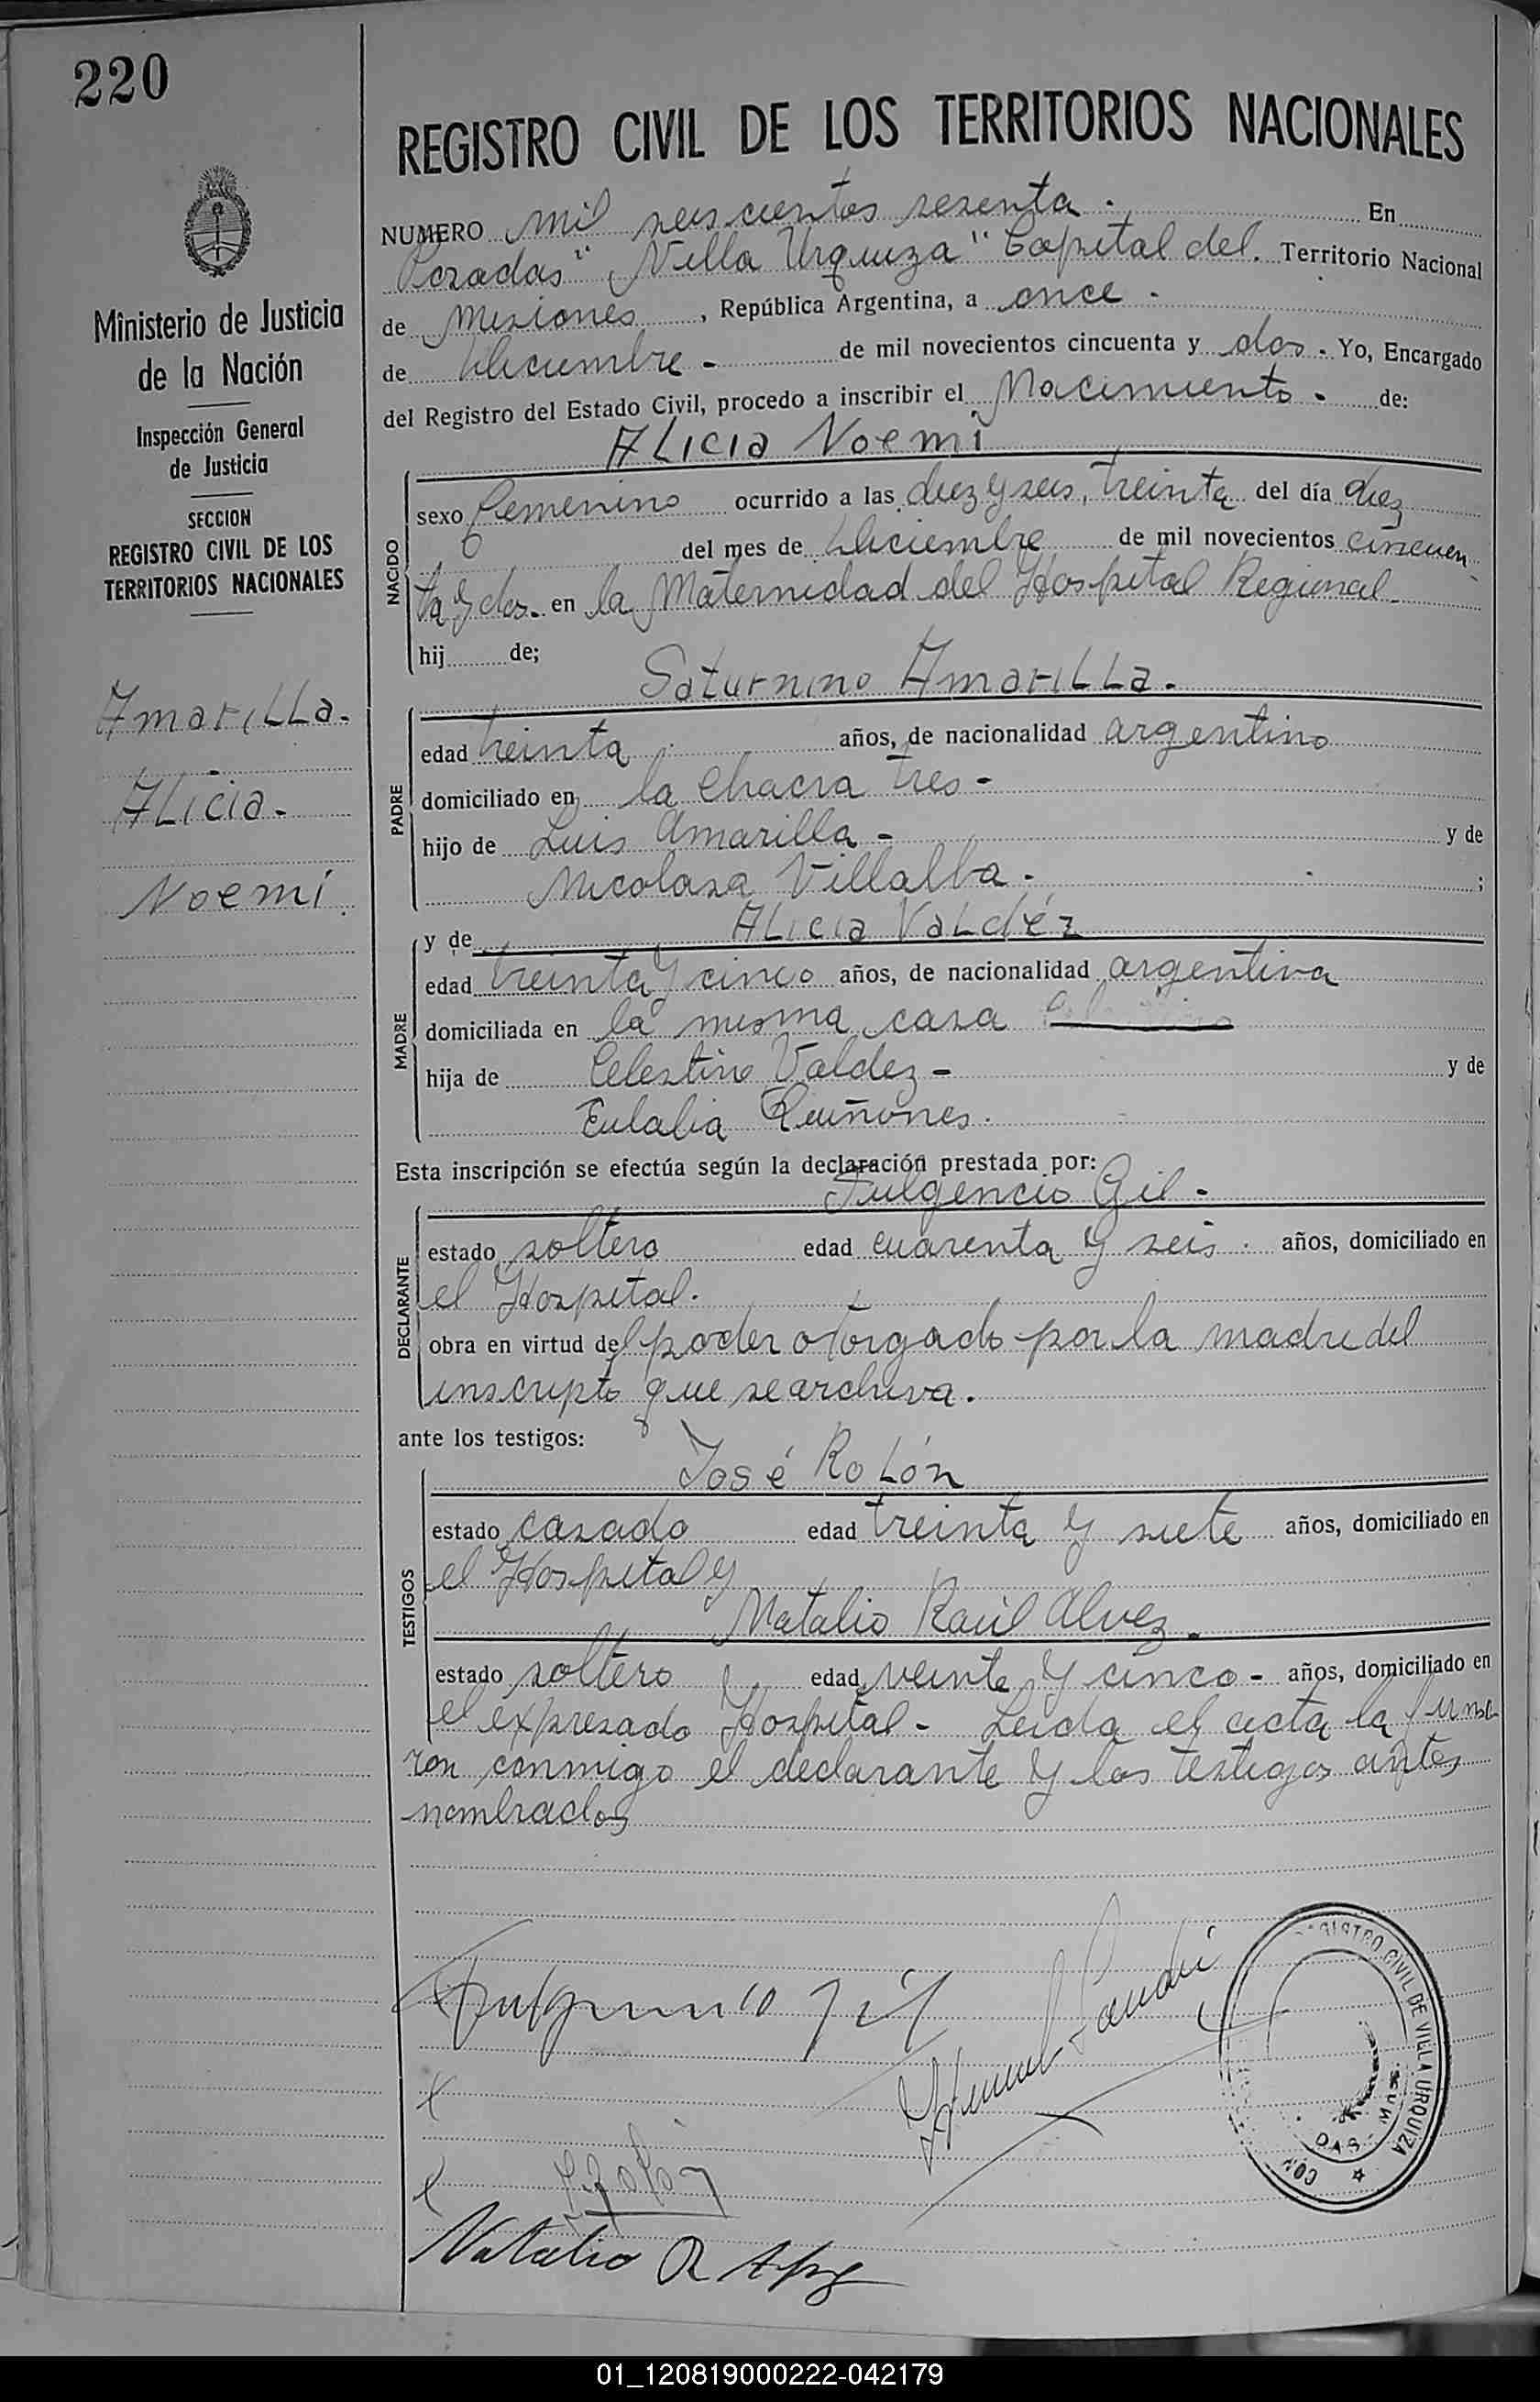 220
REGISTRO CIVIL DE LOS TERRITORIOS NACIONALES
Ministerio de Justicia
de la Nación
Inspección General
de Justicia
SECCION
REGISTRO CIVIL DE LOS
TERRITORIOS NACIONALES
Amarilla.
Alicia.
Noemi.
NUMERO mil seiscientos sesenta. En
Posadas "Villa Urquiza" Capital del. Territorio Nacional
de Misiones, República Argentina, a once.
de Diciembre - de mil novecientos cincuenta y dos. Yo, Encargado
del Registro del Estado Civil, procedo a inscribir el Nacimiento. de:
Alicia Noemi
NACIDO
sexo femenino ocurrido a las diez y seis, treinta del día diez
del mes de Diciembre de mil novecientos cincuen
ta y dos. en la Maternidad del Hospital Regional.
hij de;
Saturnino Amarilla.
PADRE
edad treinta años, de nacionalidad argentino
domiciliado en la chacra tres -
hijo de Luis Amarilla - y de
Nicolasa Villalba. ;
y de Alicia Valdéz
MADRE
edad treinta y cinco años, de nacionalidad argentina
domiciliada en la misma casa
hija de Celestino Valdez - y de
Eulalia Quiñones.
Esta inscripción se efectúa según la declaración prestada por:
Fulgencio Gil.
DECLARANTE
estado soltero edad cuarenta y seis. años, domiciliado en
el Hospital.
obra en virtud del poder otorgado por la madre del
inscripto que se archiva.
ante los testigos:
José Rolón
TESTIGOS
estado casado edad treinta y siete años, domiciliado en
el Hospital y
Natalio Raúl Alvez.
estado soltero edad veinte y cinco - años, domiciliado en
el expresado Hospital - Leida el acta la firma
ron conmigo el declarante y los testigos antes
nombrados
Fulgencio Gil
REGISTRO CIVIL DE VILLA URQUIZA
Rolón
Natalio R Alvez
01_120819000222-042179